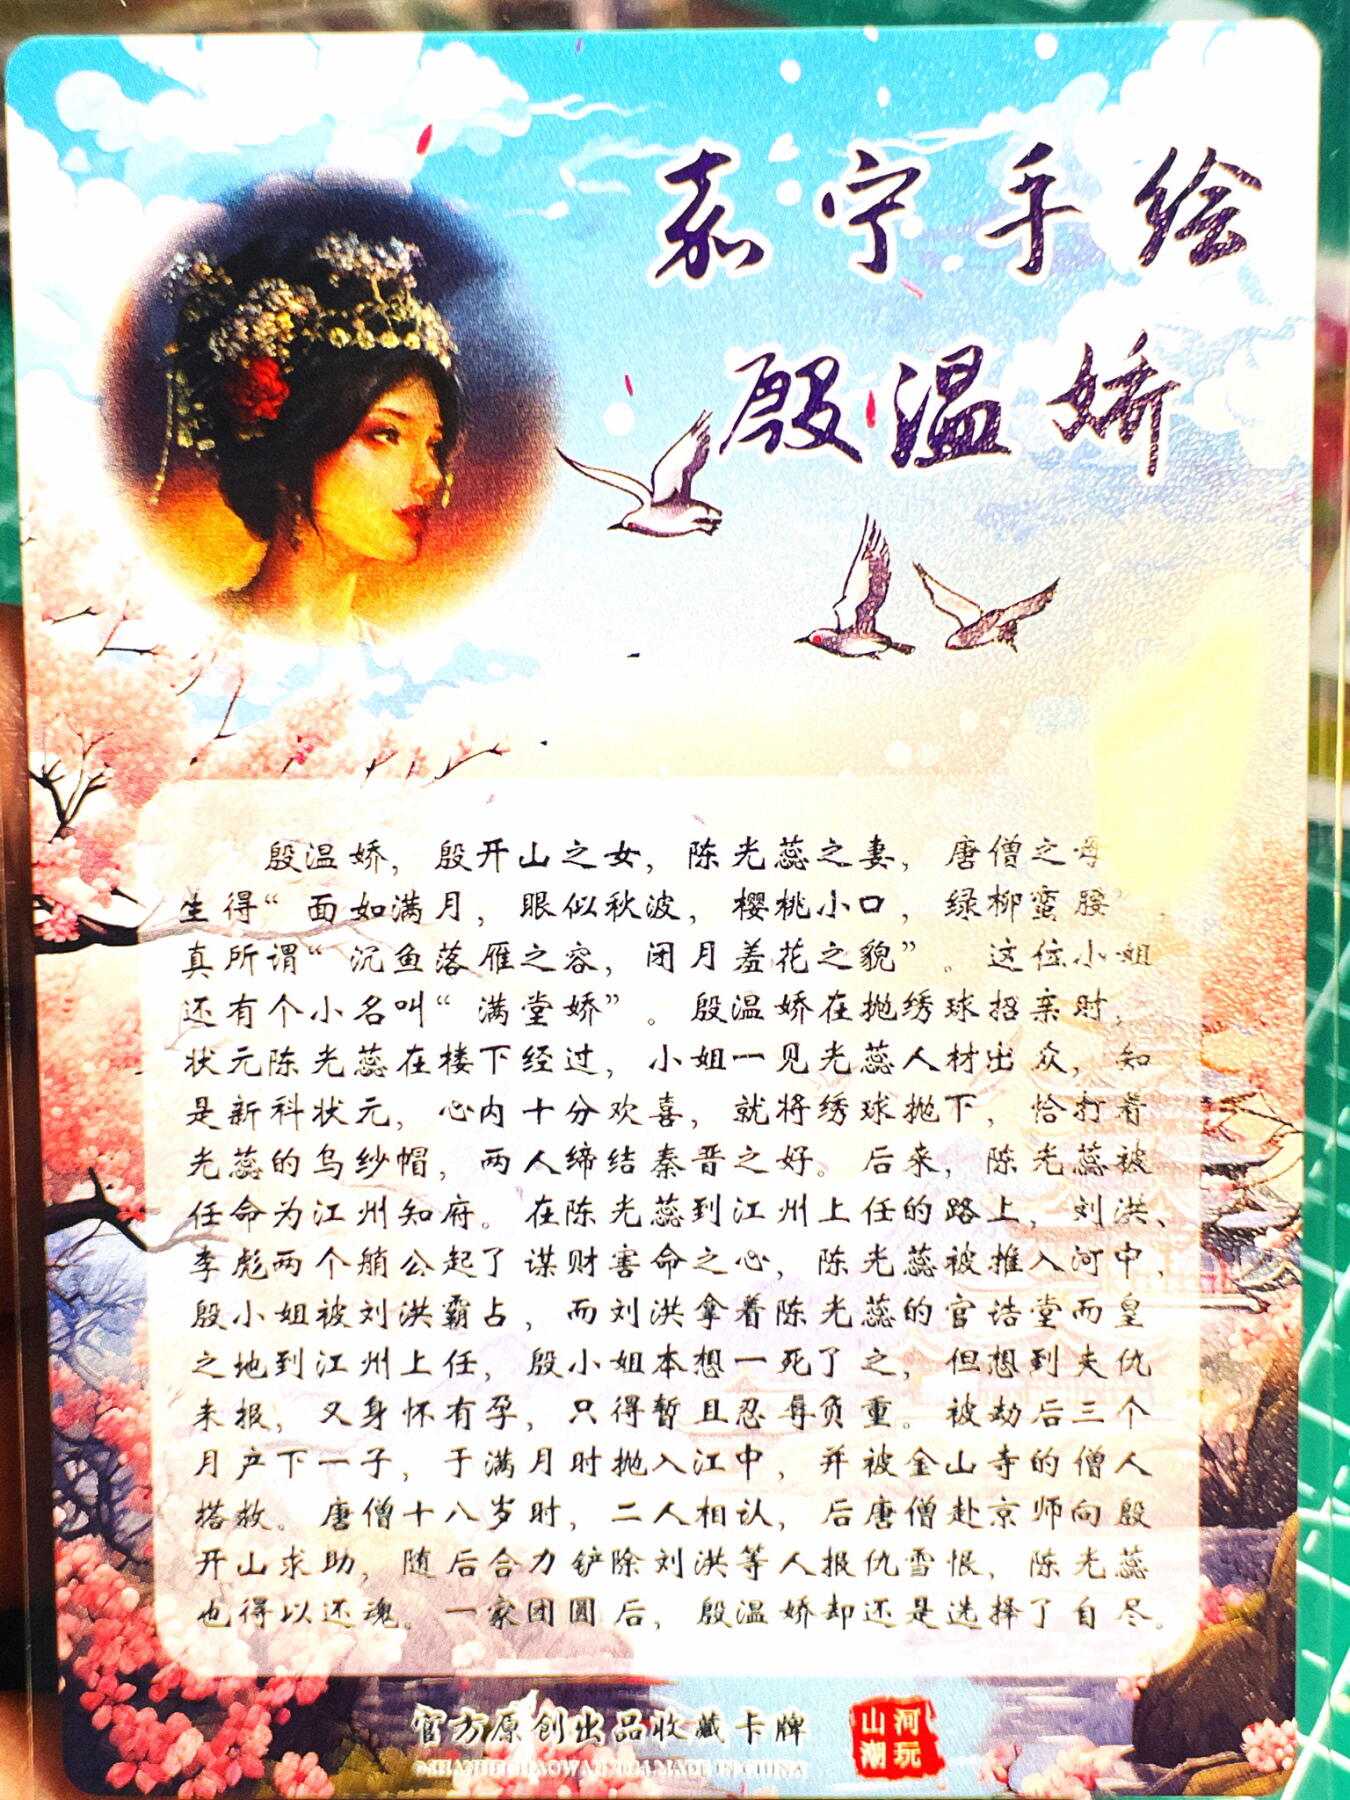 嘉宁手绘
殷温娇
殷温娇，殷开山之女，陈光蕊之妻，唐僧之母
生得“面如满月，眼似秋波，樱桃小口，绿柳蛮腰”
真所谓“沉鱼落雁之容，闭月羞花之貌”。这位小姐
还有个小名叫“满堂娇”。殷温娇在抛绣球招亲时，
状元陈光蕊在楼下经过，小姐一见光蕊人材出众，知
是新科状元，心内十分欢喜，就将绣球抛下，恰打着
光蕊的乌纱帽，两人缔结秦晋之好。后来，陈光蕊被
任命为江州知府。在陈光蕊到江州上任的路上，刘洪、
李彪两个艄公起了谋财害命之心，陈光蕊被推入河中，
殷小姐被刘洪霸占，而刘洪拿着陈光蕊的官诰堂而皇
之地到江州上任，殷小姐本想一死了之，但想到夫仇
未报，又身怀有孕，只得暂且忍辱负重。被劫后三个
月产下一子，于满月时抛入江中，并被金山寺的僧人
搭救。唐僧十八岁时，二人相认，后唐僧赴京师向殷
开山求助，随后合力铲除刘洪等人报仇雪恨，陈光蕊
也得以还魂。一家团圆后，殷温娇却还是选择了自尽。
官方原创出品收藏卡牌
山河
潮玩